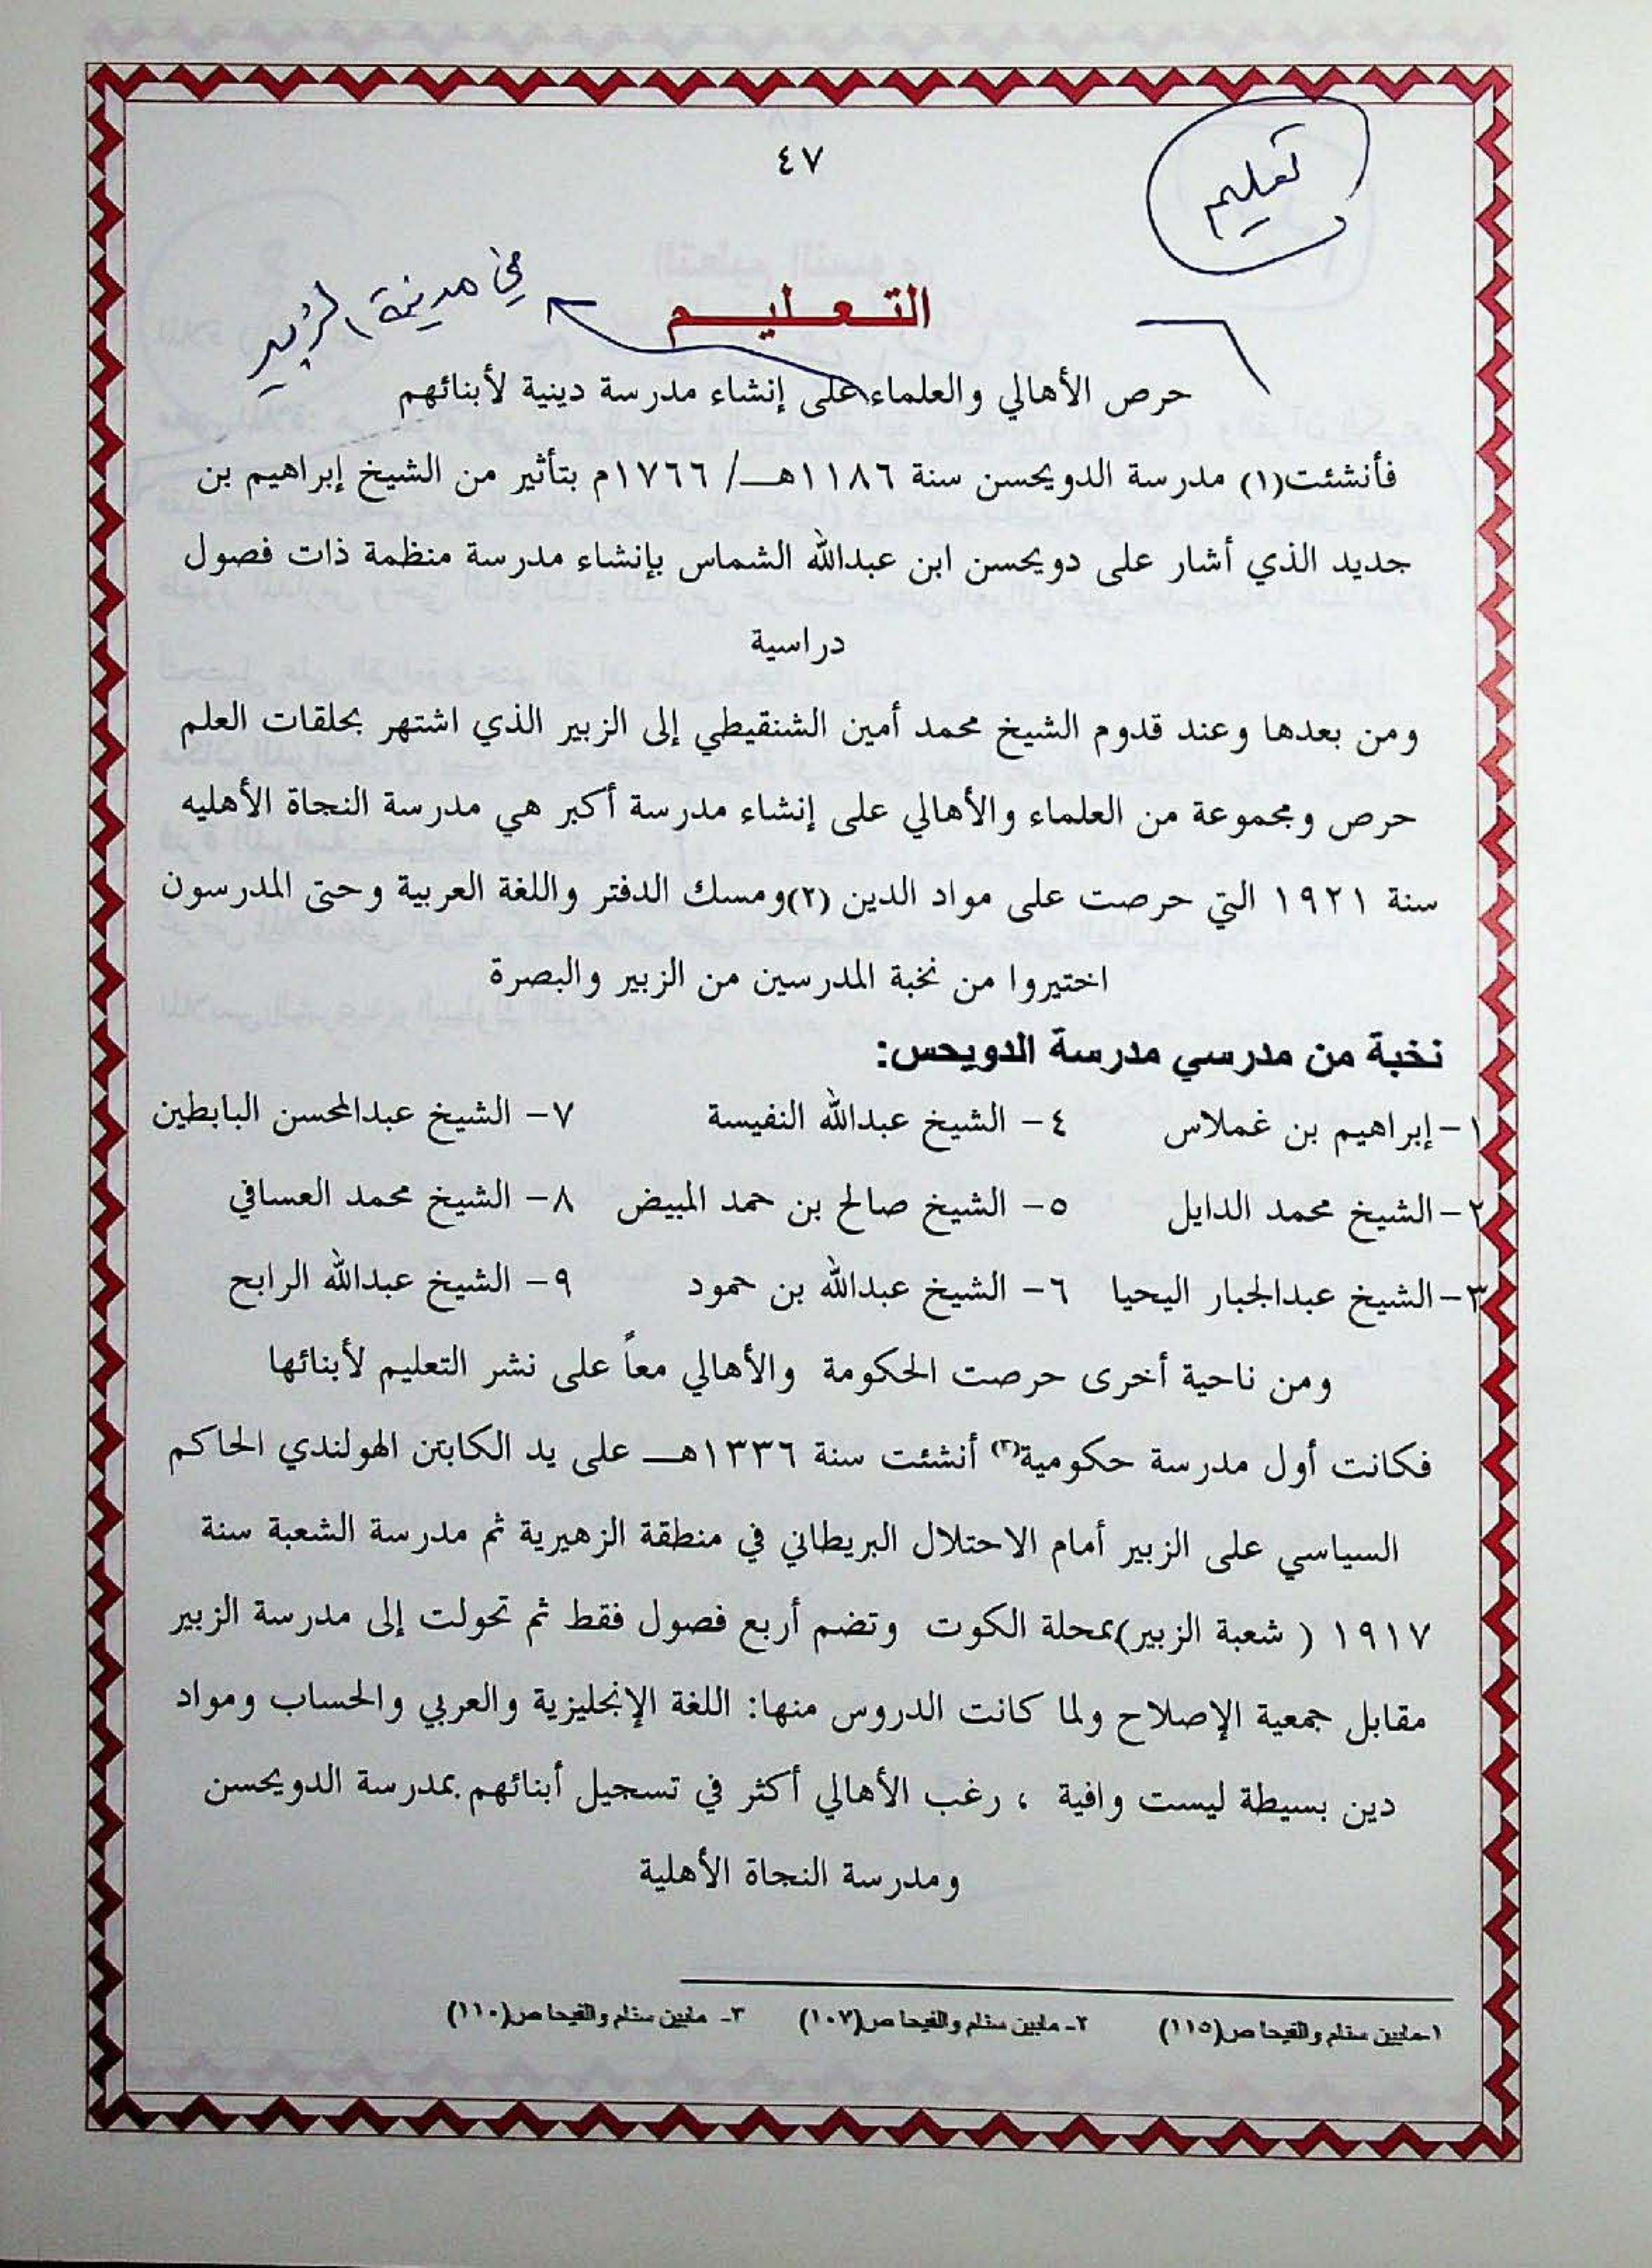 ٤٧
تعليم
التعليم
في مدينة الزبير
حرص الأهالي والعلماء على إنشاء مدرسة دينية لأبنائهم
فأنشئت(١) مدرسة الدويحسن سنة ١١٨٦هـ/ ١٧٦٦م بتأثير من الشيخ إبراهيم بن
جديد الذي أشار على دويحسن ابن عبدالله الشماس بإنشاء مدرسة منظمة ذات فصول
دراسية
ومن بعدها وعند قدوم الشيخ محمد أمين الشنقيطي إلى الزبير الذي اشتهر بحلقات العلم
حرص ومجموعة من العلماء والأهالي على إنشاء مدرسة أكبر هي مدرسة النجاة الأهليه
سنة ١٩٢١ التي حرصت على مواد الدين (٢)ومسك الدفتر واللغة العربية وحتى المدرسون
اختيروا من نخبة المدرسين من الزبير والبصرة
نخبة من مدرسي مدرسة الدويحس:
١-إبراهيم بن غملاس ٤- الشيخ عبدالله النفيسة ٧- الشيخ عبدالمحسن البابطين
٢-الشيخ محمد الدايل ٥- الشيخ صالح بن حمد المبيض ٨- الشيخ محمد العسافي
٣-الشيخ عبدالجبار اليحيا ٦- الشيخ عبدالله بن حمود ٩- الشيخ عبدالله الرابح
ومن ناحية أخرى حرصت الحكومة والأهالي معاً على نشر التعليم لأبنائها
فكانت أول مدرسة حكومية(٣) أنشئت سنة ١٣٣٦هـ على يد الكابتن الهولندي الحاكم
السياسي على الزبير أمام الاحتلال البريطاني في منطقة الزهيرية ثم مدرسة الشعبة سنة
١٩١٧ ( شعبة الزبير)بمحلة الكوت وتضم أربع فصول فقط ثم تحولت إلى مدرسة الزبير
مقابل جمعية الإصلاح ولما كانت الدروس منها: اللغة الإنجليزية والعربي والحساب ومواد
دين بسيطة ليست وافية ، رغب الأهالي أكثر في تسجيل أبنائهم بمدرسة الدويحسن
ومدرسة النجاة الأهلية
١-مابين سنام والفيحا ص(١١٥) ٢- مابين سنام والفيحا ص(١٠٧) ٣- مابين سنام والفيحا ص(١١٠)